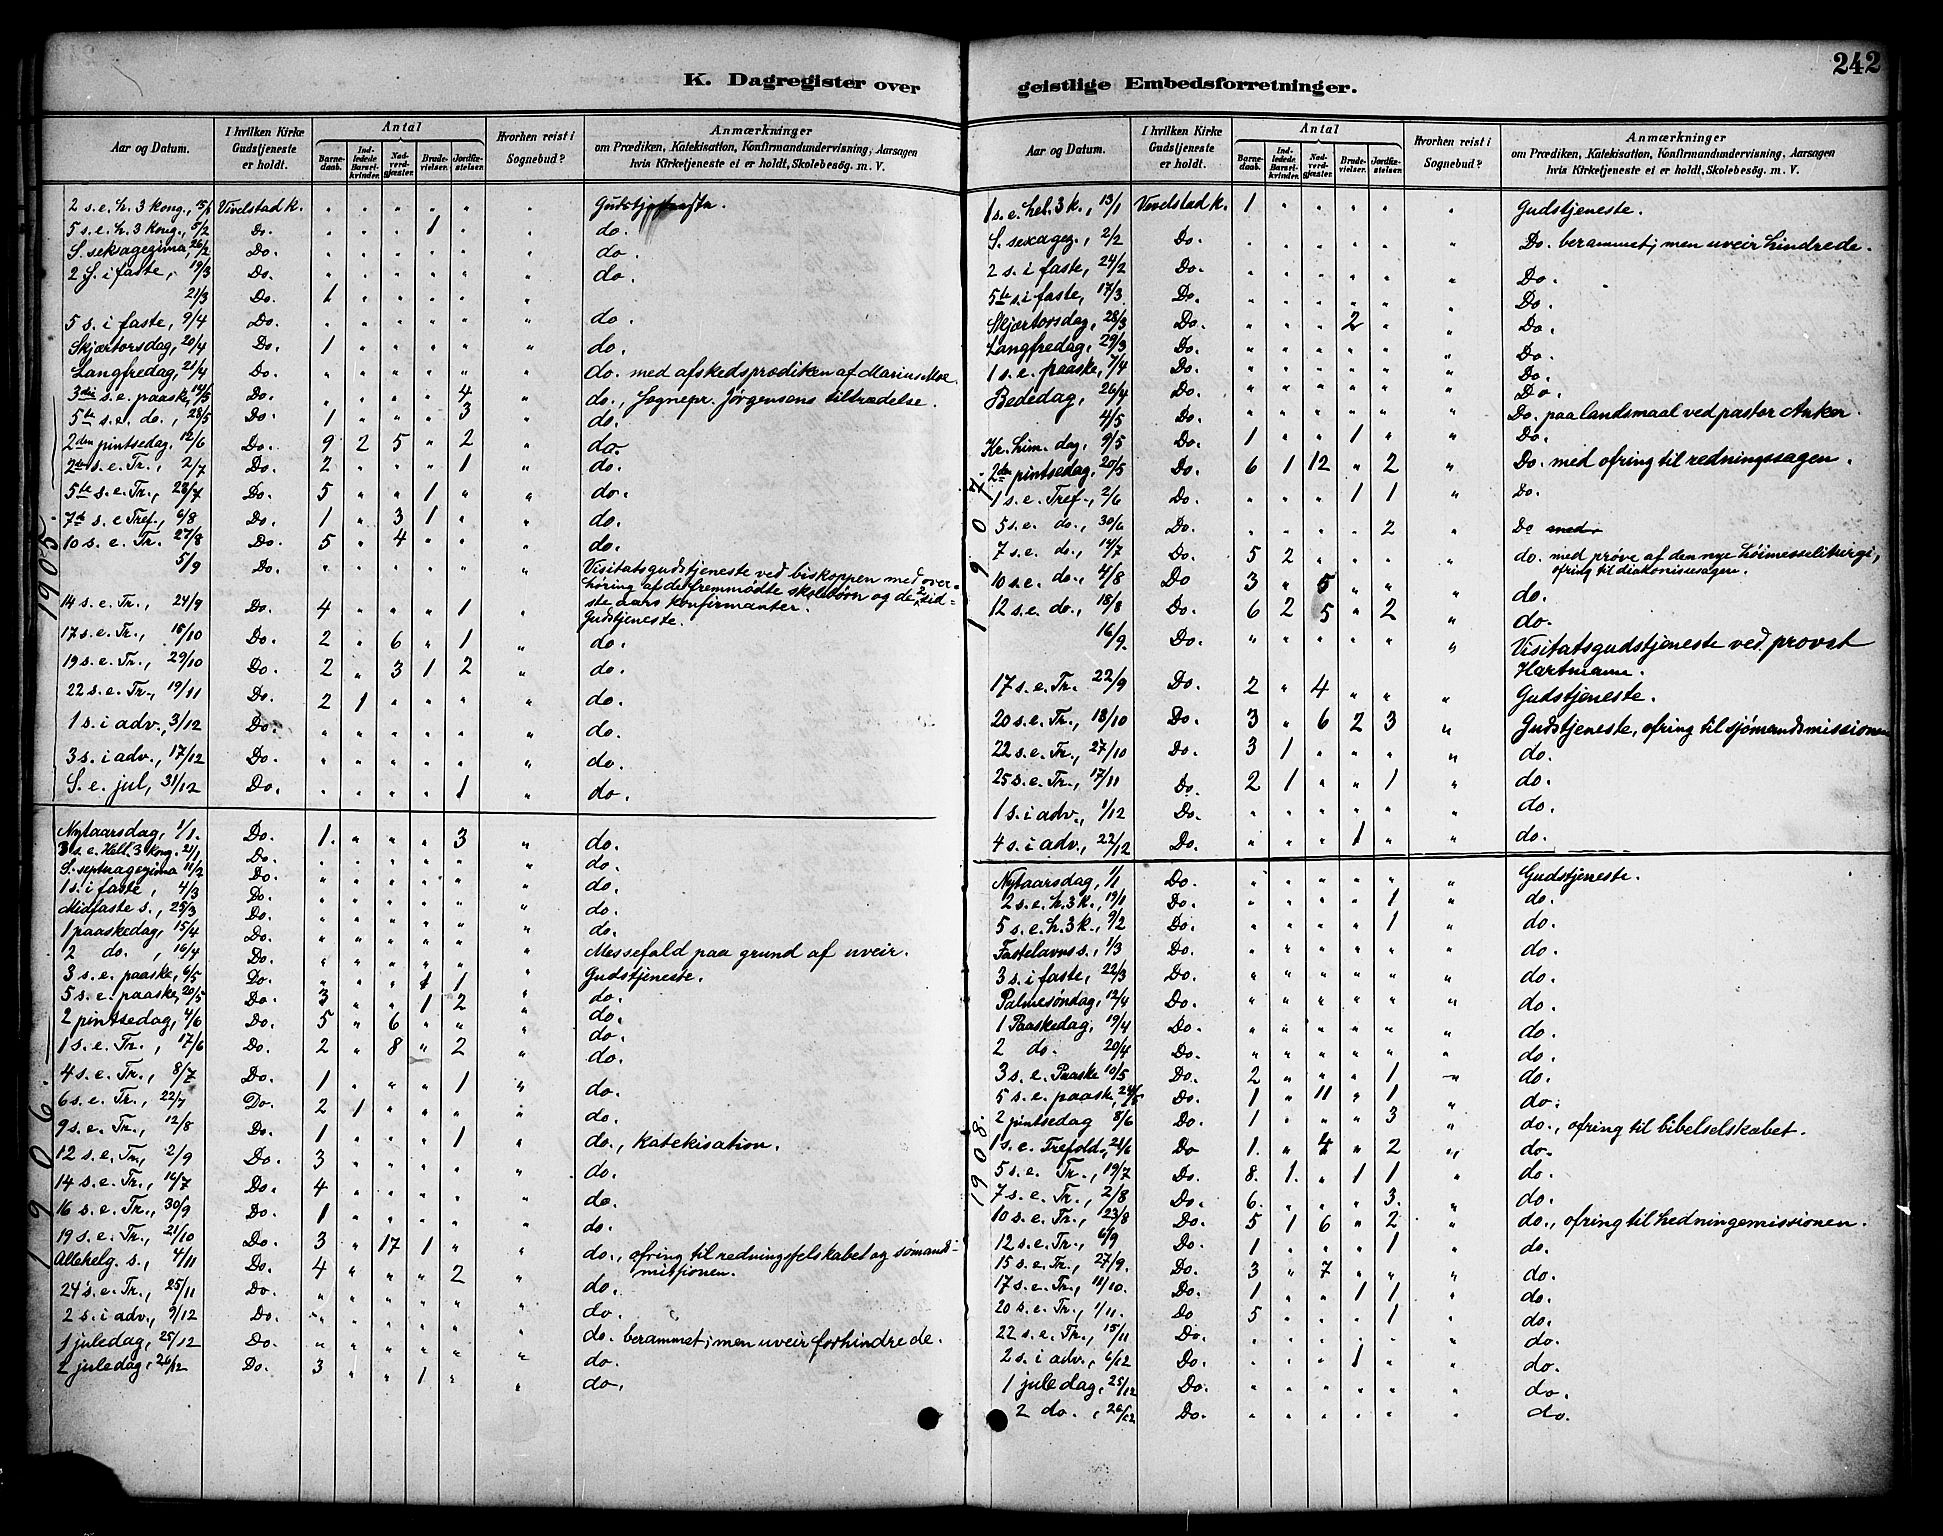 K. Dagregister over
geistlige Embedsforretninger.
242
Aar og Datum.
I hvilken Kirke Gudstjeneste er holdt.
Antal
Barnedaab.
Indledede Barselkvinder.
Nadverdgjæster.
Brudevielser.
Jordfæstelser.
Hvorhen reist i Sognebud?
Anmærkninger
om Prædiken, Katekisation, Konfirmandundervisning, Aarsagen
hvis Kirketjeneste ei er holdt, Skolebesøg. m. V.
1905.
2 s. e. h. 3 kong., 15/1 Vivelstad k. " " " " " "
5 s. e. h. 3 kong., 5/2 Do. " " " 1 " " do.
S. seksagegima, 26/2 Do. " " " " " " do.
2 S. i faste, 19/3 Do. " " " " " " do.
21/3 Do. 1 " " " " "
5 s. i faste, 9/4 Do. " " " " " " do.
Skjærtorsdag, 20/4 Do. 1 " " " " " do.
Langfredag, 21/4 Do. " " " " " " do. med afskedsprædiken af Marius Moe.
3die s. e. paaske, 14/5 Do. " " " " 4 " do., Sognepr. Jørgensens tiltrædelse.
5te s. e. do., 28/5 Do. 1 " " " 3 " do.
2den pintsedag, 12/6 Do. 9 2 5 " 2 " do.
2den s. e. Tr., 2/7 Do. 2 " " " 1 " do.
5te s. e. Tr., 23/7 Do. 5 " " 1 " " do.
7de s. e. Tref., 6/8 Do. 1 " 3 1 " " do.
10 s. e. Tr. 27/8 Do. 5 " 4 " " " do.
5/9 Do. " " " " " " Visitatsgudstjeneste ved biskoppen med over-
høring af de fremmødte skolebørn og de 2 sid-
ste aars konfirmanter.
14 s. e. Tr., 24/9 Do. 4 " " " 1 " Gudstjeneste.
17 s. e. Tr., 15/10 Do. 2 " 6 " 1 " do.
19 s. e. Tr., 29/10 Do. 2 " 3 1 2 " do.
22 s. e. Tr., 19/11 Do. 2 1 " " " " do.
1 s. i adv., 3/12 Do. " " " " " " do.
3 s. i adv., 17/12 Do. " " " " " " do.
S. e. jul, 31/12 Do. " " " " 1 " do.
1906.
Nytaarsdag, 1/1. Do. 1. " " " 3 " do.
3 s. e. Hell. 3 kong. 21/1 Do. " " " " " " do.
S. septuagegima 11/2 Do. " " " " " " do.
1 s. i faste, 4/3 Do. " " " " " " do.
Midfaste s., 25/3 Do. " " " " " " do.
1 paaskedag, 15/4 Do. " " " " " " Messefald paa grund af uveir.
2 do., 16/4 Do. " " " " " " Gudstjeneste.
3 s. e. paaske, 6/5 Do. " " " 1 1 " do.
5 s. e. paaske, 20/5 Do. 3 " " 1 2 " do.
2 pintsedag, 4/6 Do. 5 " 6 " " " do.
1 s. e. Tr., 17/6 Do. 2 " 8 " 2 " do.
4 s. e. Tr., 8/7 Do. 1 " " " 1 " do.
6 s. e. Tr., 22/7 Do. 2 1 " " " " do.
9 s. e. Tr., 12/8 Do. 1 " " " 1 " do., katekisation.
12 s. e. Tr., 2/9 Do. 3 " " " " " do.
14 s. e. Tr., 16/7 Do. 4 " " " " " do.
16 s. e. Tr., 30/9 Do. 1 " " " " " do.
19 s. e. Tr., 21/10 Do. 3 " 17 1 " " do., ofring til redningsselskabet og sømands-
missjonen.
Allehelg. s., 4/11 Do. 4 " " " 2 " do.
24 s. e. Tr., 25/11 Do. " " " " " " do.
2 s. i adv., 9/12 Do. " " " " " " do. berammet; men uveir forhindrede.
1 juledag, 25/12 Do. " " " " " " do.
2 juledag, 26/12 Do. 3 " " 1 " " do.
Aar og Datum.
I hvilken Kirke Gudstjeneste er holdt.
Antal
Barnedaab.
Indledede Barselkvinder.
Nadverdgjæster.
Brudevielser.
Jordfæstelser.
Hvorhen reist i Sognebud?
Anmærkninger
om Prædiken, Katekisation, Konfirmandundervisning, Aarsagen
hvis Kirketjeneste ei er holdt, Skolebesøg. m. V.
1907.
1 s. e. hel. 3 k., 13/1 Vivelstad k. 1 " " " " " Gudstjeneste.
S. sexages., 2/2 Do. " " " " " " Do. berammet; men uveir hindrede.
2 s. i faste, 24/2 Do. " " " " " " Do.
5te s. i faste, 17/3 Do. " " " " " " Do.
Skjærtorsdag, 28/3 Do. " " " 2 " " Do.
Langfredag, 29/3 Do. " " " " " " Do.
1 s. e. paaske, 7/4 Do. " " " " " " Do.
Bededag, 26/4 Do. " " " " " " Do.
4/5 Do. " " " " " " Do. paa landsmaal ved pastor Anker.
Kr. him. dag, 9/5 Do. 1 " " 1 " " Do.
2den pintsedag, 20/5 Do. 6 1 12 " 2 " Do. med ofring til redningssagen.
1 s. e. Tref., 2/6 Do. " " " 1 1 " Do.
5 s. e. do., 30/6 Do. " " " " 2 " Do med
7 s. e. do., 14/7 Do. 5 2 " " " " do. med prøve af den nye høimesseliturgi,
ofring til diakonissesagen.
10 s. e. do., 4/8 Do 3 " 5 " " " do.
12 s. e. do., 18/8 Do. 6 2 5 " 2 " do.
16/9. Do. " " " " " " Visitatsgudstjeneste ved provst
Hartmann.
17 s. e. Tr. 22/9 Do. 2 " 4 " " " Gudstjeneste.
20 s. e. Tr., 13/10 Do. 3 " 6 2 3 " Gudstjeneste, ofring til sjømandsmissionen
22 s. e. Tr., 27/10 Do. 3 1 " " " " do.
25 s. e. Tr., 17/11 Do. 2 1 " " 1 " do.
1 s. i adv., 1/12 Do. " " " " " " do.
4 s. i adv., 22/12 Do. " " " 1 " " do.
1908.
Nytaarsdag, 1/1 Do. " " " " " " Gudstjeneste.
2 s. e. h. 3 k., 19/1 Do. " " " " 1 " do.
5 s. e. h. 3 k., 9/2 Do. " " " " 1 " do.
Fastelavns s., 1/3 Do. " " " " " " do.
3 s. i faste, 22/3 Do. " " " " " " do.
Palmesøndag, 12/4 Do. " " " " " " do.
1 Paaskedag, 19/4 Do. " " " " " " do.
2 do. 20/4 Do. " " " " " " do.
3 s. e. Paaske 10/5 Do. 2 " " " 1 " do.
5 s. e. paaske, 24/5 Do. 1 " 11 " 1 " do.
2 pintsedag 8/6 Do. 1 " " " 3 " do., ofring til bibelselskabet.
1 s. e. Trefold., 21/6 Do 1. " 4 " 2 " do.
5 s. e. Tr., 19/7 Do. 8. 1. " 1 1 " do.
7 s. e. Tr., 2/8 Do. 6. " " " 3. " do.
10 s. e. Tr., 23/8 Do. 5 1 6 " 2 " do., ofring til hedningemissionen.
12 s. e. Tr., 6/9 Do. 1 " " " 1 " do.
15 s. e. Tr., 27/9. Do. 3 " 7 " " " do.
17 s. e. Tr., 11/10. Do. 1 " " 1 1 " do.
20 s. e. Tr., 1/11. Do 5 " " " 1 " do.
22 s. e. Tr., 15/11 Do. " " " " " " do.
2 s. i adv., 6/12 Do. " " " 1 " " do.
1 juledag, 25/12 Do. " " " " " " do.
2 do., 26/12 Do. " " " " " " do.